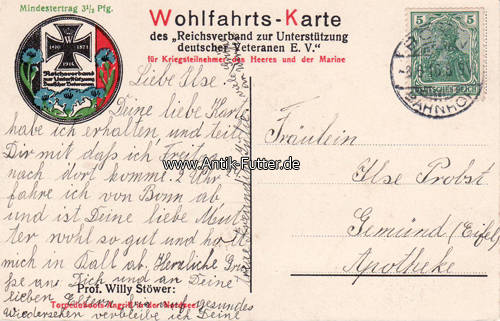 Mindestertrag 3½ Pfg.
Wohlfahrts-Karte
des „Reichsverband zur Unterstützung
deutscher Veteranen E. V.“
für Kriegsteilnehmer des Heeres und der Marine
1870 1871
1914
Reichsverband
zur Unterstützung
Deutscher Veteranen
5 5
DEUTSCHES REICH
BAHNHOF
Liebe Ilse.
Deine liebe Karte
habe ich erhalten und teile
Dir mit daß ich Freitag
nach dort komme. 2 Uhr
fahre ich von Bonn ab,
und ist Deine liebe Mut-
ter wohl so gut und holt
mich in Call ab. Herzliche Grü-
sse an Dich und an Deine
lieben Eltern
gesundes
Wiedersehen verbleibe ich Deine
Prof. Willy Stöwer:
Torpedoboots-Angriff in der Nordsee
Fräulein
Ilse Probst
Gemünd (Eifel)
Apotheke
www.Antik-Futter.de